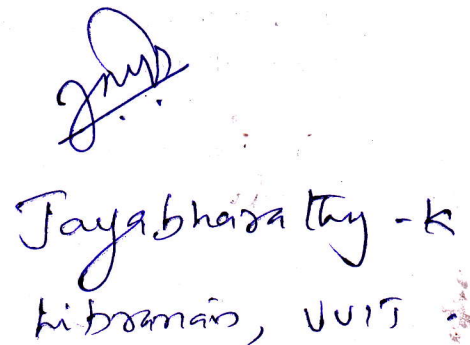 Jayabharathy - K
Librarian, VVIT